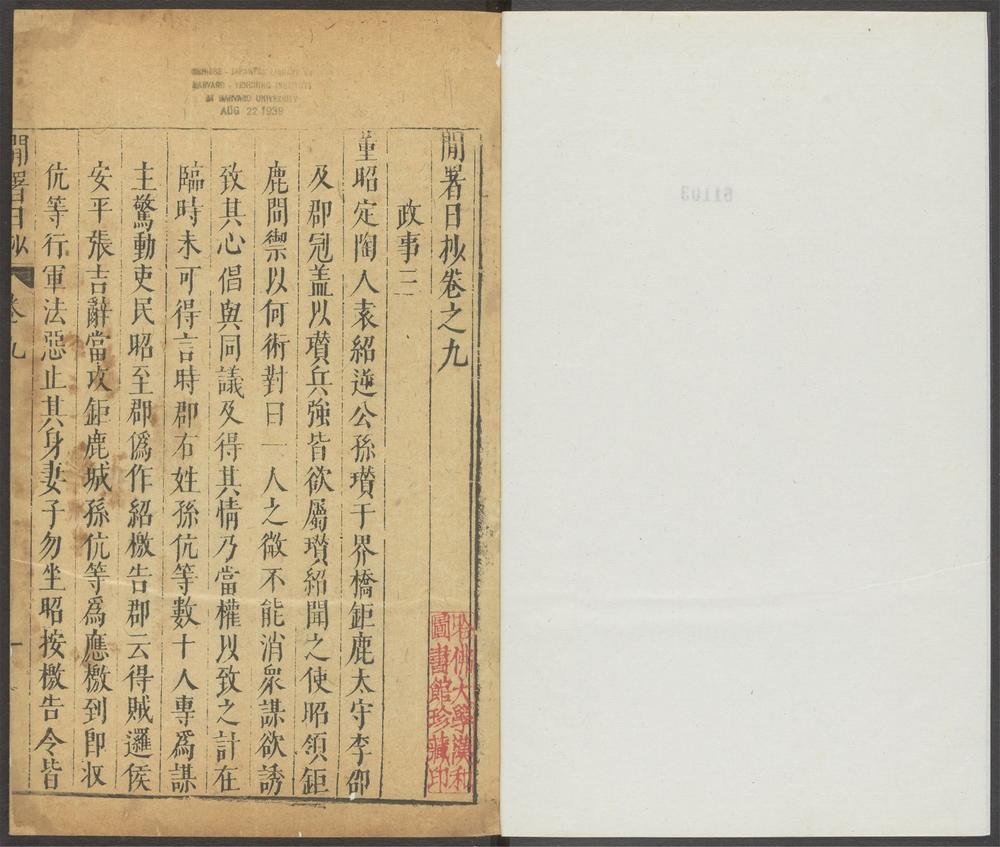 閒署日抄卷之九
政事三
董昭定陶人袁紹逆公孫瓚于界橋鉅鹿太守李邵
及郡冠盖以瓚兵強皆欲屬瓚紹聞之使昭領鉅
鹿問禦以何術對曰一人之微不能消衆謀欲誘
致其心倡與同議及得其情乃當權以致之計在
臨時未可得言時郡右姓孫伉等數十人專爲謀
主驚動吏民昭至郡僞作紹檄告郡云得賊邏侯
安平張吉辭當攻鉅鹿城孫伉等爲應檄到卽収
伉等行軍法惡止其身妻子勿坐昭按檄告令皆
閒署日抄
卷九
一
哈佛大學漢和
圖書館珍藏印
CHINESE - JAPANESE LIBRARY OF
HARVARD - YENCHING INSTITUTE
AT HARVARD UNIVERSITY
AUG 22 1939
61103